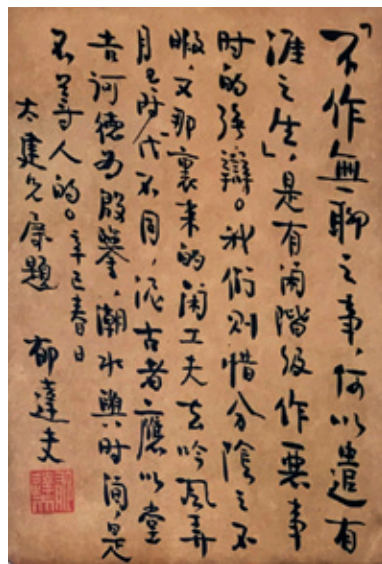 「不作無聊之事，何以遣有
涯之生」，是有闲階级作惡事
时的强辯。我们则惜分陰之不
暇，又那裏来的闲工夫去吟风弄
月 时代不同，泥古者應以堂
吉诃德为殷鑒，潮水與时间，是
不等人的。辛巳春日
太建兄属題 郁達夫